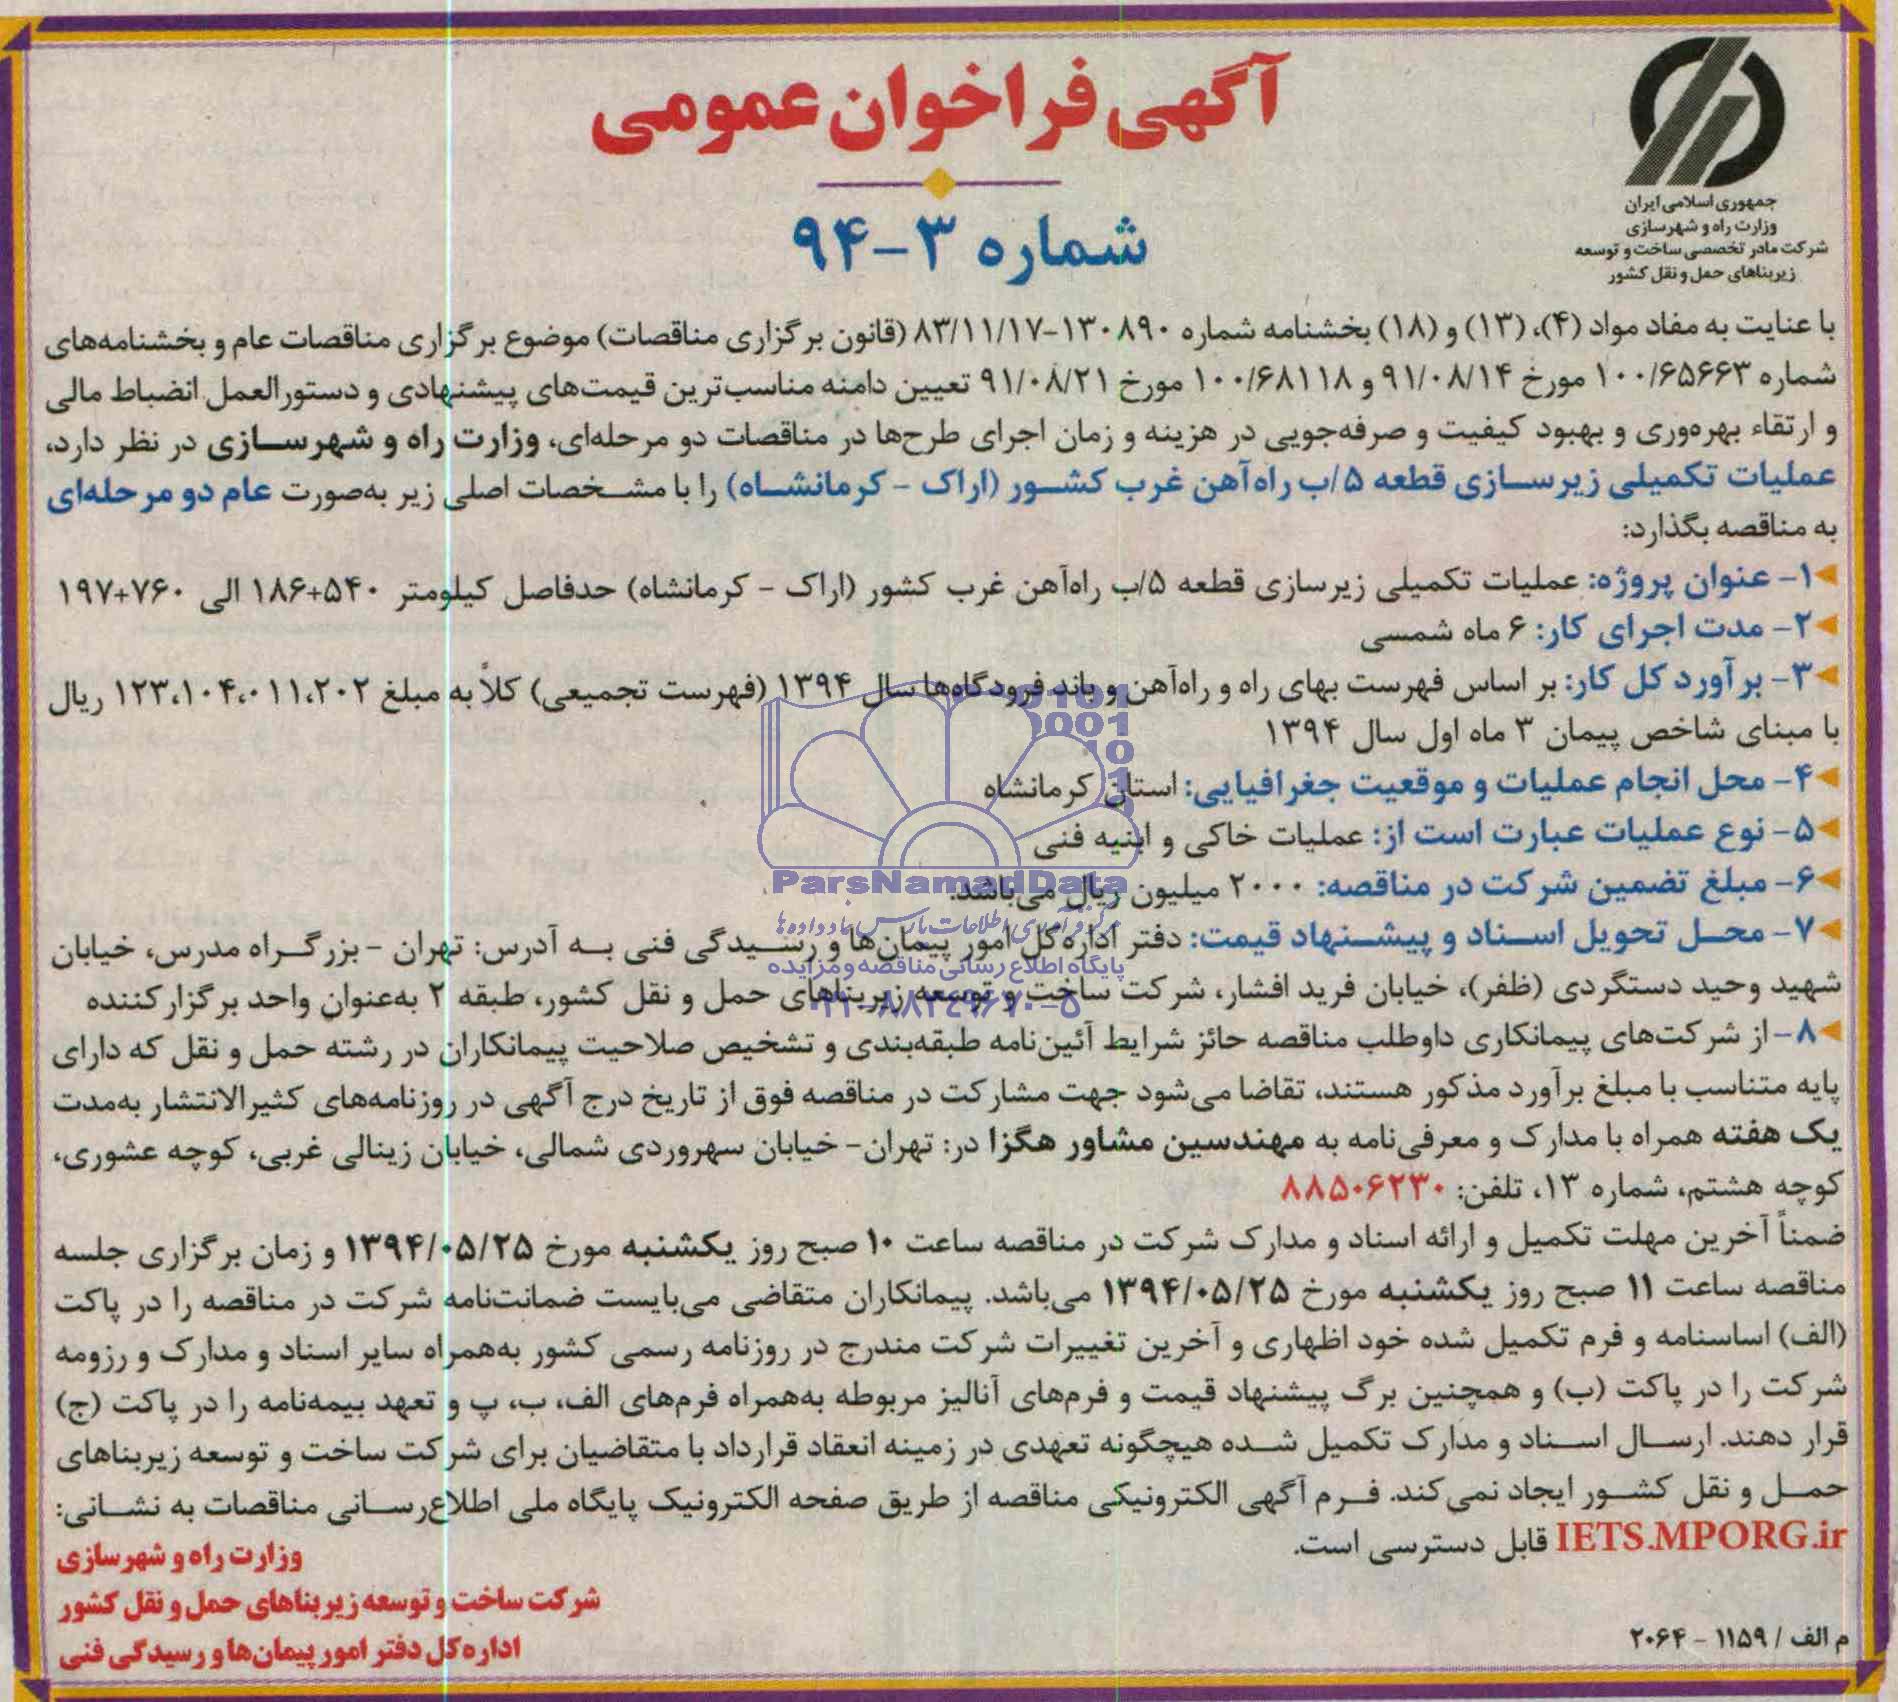 جمهوری اسلامی ایران
وزارت راه و شهرسازی
شرکت مادر تخصصی ساخت و توسعه
زیربناهای حمل و نقل کشور
آگهی فراخوان عمومی
شماره ۳-۹۴
با عنایت به مفاد مواد (۴)، (۱۳) و (۱۸) بخشنامه شماره ۱۳۰۸۹۰-۸۳/۱۱/۱۷ (قانون برگزاری مناقصات) موضوع برگزاری مناقصات عام و بخشنامه‌های
شماره ۱۰۰/۶۵۶۶۳ مورخ ۹۱/۰۸/۱۴ و ۱۰۰/۶۸۱۱۸ مورخ ۹۱/۰۸/۲۱ تعیین دامنه مناسب‌ترین قیمت‌های پیشنهادی و دستورالعمل انضباط مالی
و ارتقاء بهره‌وری و بهبود کیفیت و صرفه‌جویی در هزینه و زمان اجرای طرح‌ها در مناقصات دو مرحله‌ای، وزارت راه و شهرسازی در نظر دارد،
عملیات تکمیلی زیرسازی قطعه ۵/ب راه‌آهن غرب کشور (اراک - کرمانشاه) را با مشخصات اصلی زیر به‌صورت عام دو مرحله‌ای
به مناقصه بگذارد:
۱- عنوان پروژه: عملیات تکمیلی زیرسازی قطعه ۵/ب راه‌آهن غرب کشور (اراک - کرمانشاه) حدفاصل کیلومتر ۵۴۰+۱۸۶ الی ۷۶۰+۱۹۷
۲- مدت اجرای کار: ۶ ماه شمسی
۳- برآورد کل کار: بر اساس فهرست بهای راه و راه‌آهن و باند فرودگاه‌ها سال ۱۳۹۴ (فهرست تجمیعی) کلاً به مبلغ ۱۲۳،۱۰۴،۰۱۱،۲۰۲ ریال
با مبنای شاخص پیمان ۳ ماه اول سال ۱۳۹۴
۴- محل انجام عملیات و موقعیت جغرافیایی: استان کرمانشاه
۵- نوع عملیات عبارت است از: عملیات خاکی و ابنیه فنی
۶- مبلغ تضمین شرکت در مناقصه: ۲۰۰۰ میلیون ریال می‌باشد.
۷- محل تحویل اسناد و پیشنهاد قیمت: دفتر اداره‌کل امور پیمان‌ها و رسیدگی فنی به آدرس: تهران - بزرگراه مدرس، خیابان
شهید وحید دستگردی (ظفر)، خیابان فرید افشار، شرکت ساخت و توسعه زیربناهای حمل و نقل کشور، طبقه ۲ به‌عنوان واحد برگزارکننده
۸- از شرکت‌های پیمانکاری داوطلب مناقصه حائز شرایط آئین‌نامه طبقه‌بندی و تشخیص صلاحیت پیمانکاران در رشته حمل و نقل که دارای
پایه متناسب با مبلغ برآورد مذکور هستند، تقاضا می‌شود جهت مشارکت در مناقصه فوق از تاریخ درج آگهی در روزنامه‌های کثیرالانتشار به‌مدت
یک هفته همراه با مدارک و معرفی‌نامه به مهندسین مشاور هگزا در: تهران- خیابان سهروردی شمالی، خیابان زینالی غربی، کوچه عشوری،
کوچه هشتم، شماره ۱۳، تلفن: ۸۸۵۰۶۲۳۰
ضمناً آخرین مهلت تکمیل و ارائه اسناد و مدارک شرکت در مناقصه ساعت ۱۰ صبح روز یکشنبه مورخ ۱۳۹۴/۰۵/۲۵ و زمان برگزاری جلسه
مناقصه ساعت ۱۱ صبح روز یکشنبه مورخ ۱۳۹۴/۰۵/۲۵ می‌باشد. پیمانکاران متقاضی می‌بایست ضمانت‌نامه شرکت در مناقصه را در پاکت
(الف) اساسنامه و فرم تکمیل شده خود اظهاری و آخرین تغییرات شرکت مندرج در روزنامه رسمی کشور به‌همراه سایر اسناد و مدارک و رزومه
شرکت را در پاکت (ب) و همچنین برگ پیشنهاد قیمت و فرم‌های آنالیز مربوطه به‌همراه فرم‌های الف، ب، پ و تعهد بیمه‌نامه را در پاکت (ج)
قرار دهند. ارسال اسناد و مدارک تکمیل شده هیچگونه تعهدی در زمینه انعقاد قرارداد با متقاضیان برای شرکت ساخت و توسعه زیربناهای
حمل و نقل کشور ایجاد نمی‌کند. فرم آگهی الکترونیکی مناقصه از طریق صفحه الکترونیک پایگاه ملی اطلاع‌رسانی مناقصات به نشانی:
IETS.MPORG.ir قابل دسترسی است.
وزارت راه و شهرسازی
شرکت ساخت و توسعه زیربناهای حمل و نقل کشور
اداره‌کل دفتر امور پیمان‌ها و رسیدگی فنی
م الف / ۱۱۵۹ - ۲۰۶۴
ParsNamadData
مرکز فرآوری اطلاعات پارس نماد داده‌ها
پایگاه اطلاع رسانی مناقصه و مزایده
۰۲۱-۸۸۳۴۹۶۷۰-۵